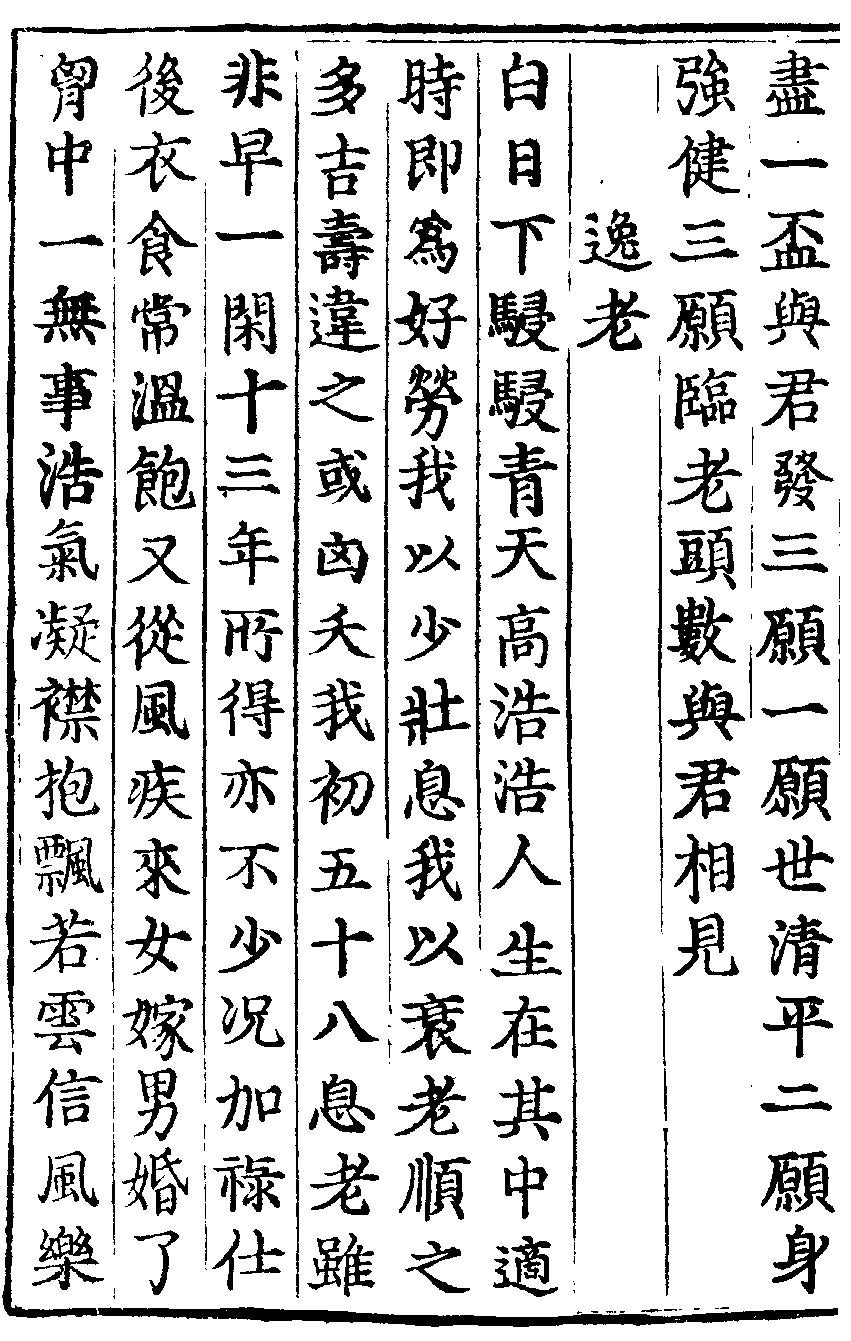 盡一盃與君發三願一願世清平二願身
強健三願臨老頭數與君相見
逸老
白日下駸駸青天高浩浩人生在其中適
時即爲好勞我以少壯息我以衰老順之
多吉壽違之或凶夭我初五十八息老雖
非早一閑十三年所得亦不少况加祿仕
後衣食常溫飽又從風疾來女嫁男婚了
胷中一無事浩氣凝襟抱飄若雲信風樂